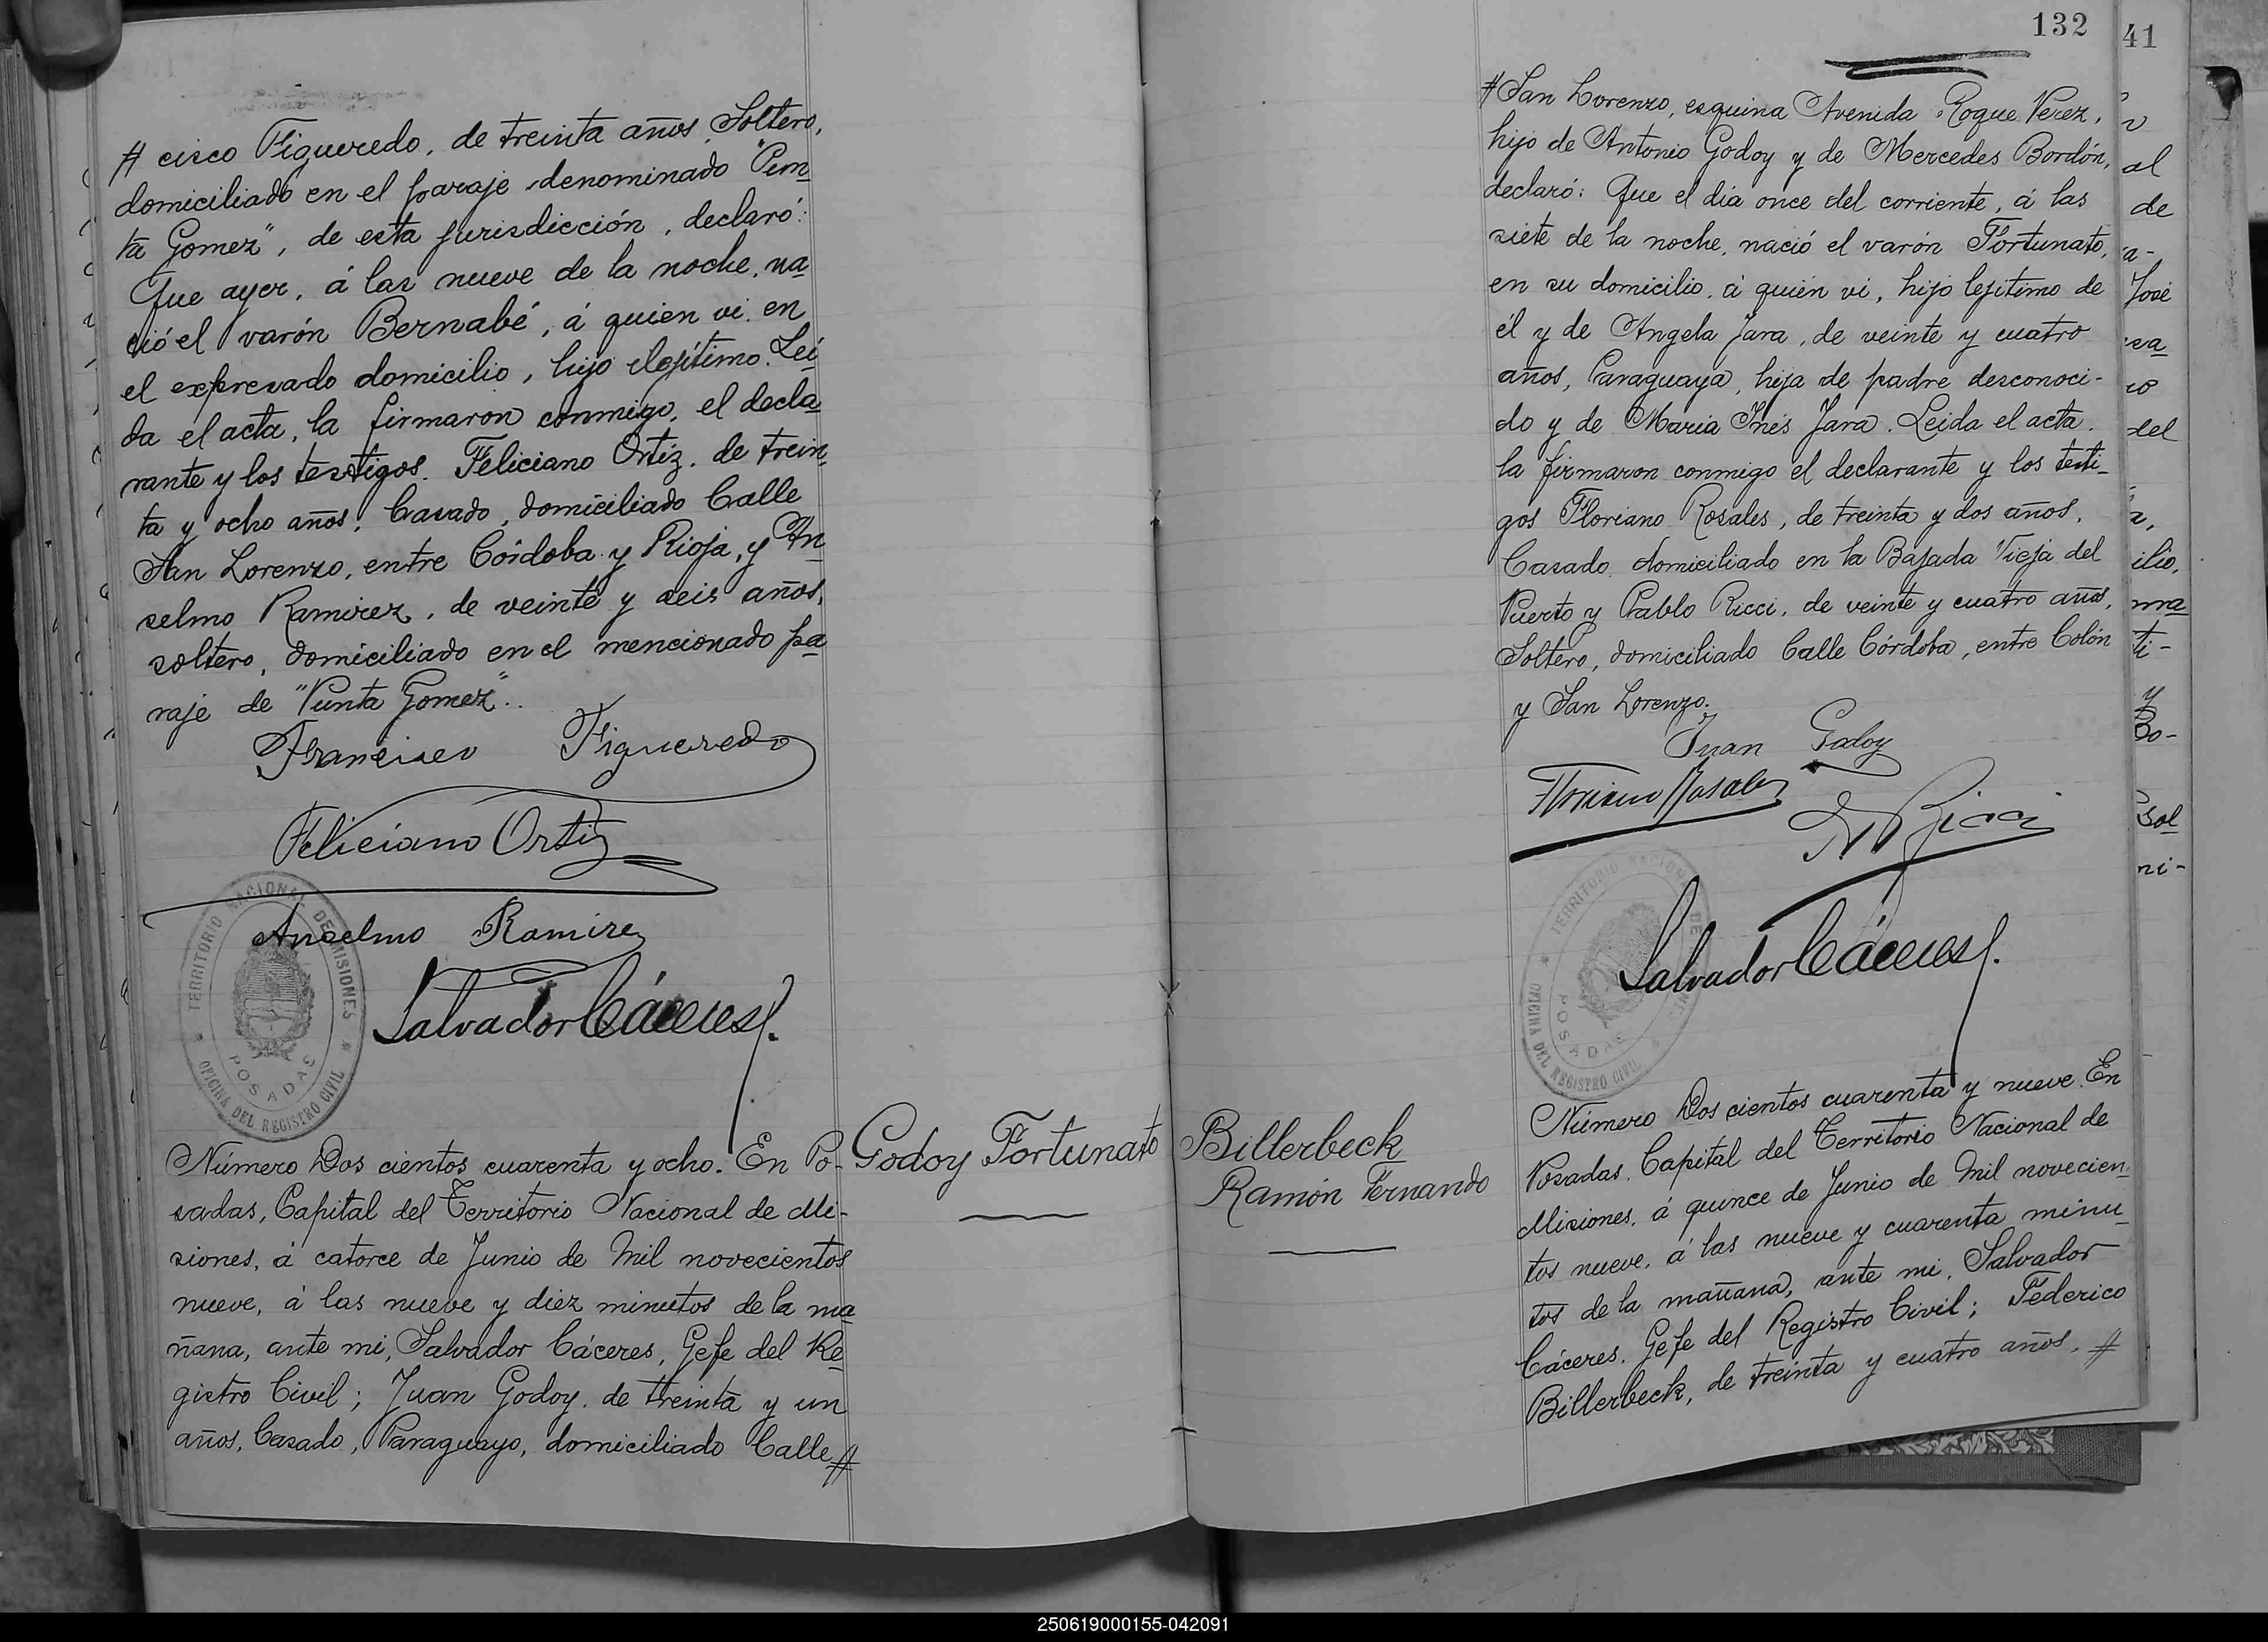 # cisco Figueredo, de treinta años, Soltero,
domiciliado en el paraje denominado "Pun
ta Gomez", de esta jurisdicción, declaró:
Que ayer, á las nueve de la noche, na
ció el varón Bernabé, á quien vi en
el expresado domicilio, hijo ilegítimo. Leí
da el acta, la firmaron conmigo, el decla
rante y los testigos. Feliciano Ortiz, de trein
ta y ocho años, Casado, domiciliado Calle
San Lorenzo, entre Córdoba y Rioja, y An
selmo Ramirez, de veinte y seis años,
soltero, domiciliado en el mencionado pa
raje de "Punta Gomez"..
Francisco Figueredo
Feliciano Ortiz
Anselmo Ramirez
Salvador Cáceres
TERRITORIO NACIONAL DE MISIONES
POSADAS
OFICINA DEL REGISTRO CIVIL
Número Dos cientos cuarenta y ocho. En Po-
sadas, Capital del Territorio Nacional de Mi-
siones, á catorce de Junio de Mil novecientos
nueve, á las nueve y diez minutos de la ma
ñana, ante mi, Salvador Cáceres, Gefe del Re
gistro Civil; Juan Godoy, de treinta y un
años, Casado, Paraguayo, domiciliado Calle #
Godoy Fortunato
132
# San Lorenzo, esquina Avenida Roque Perez,
hijo de Antonio Godoy y de Mercedes Bordón,
declaró: Que el día once del corriente, á las
siete de la noche, nació el varón Fortunato,
en su domicilio, á quien vi, hijo lejítimo de
él y de Angela Jara, de veinte y cuatro
años, Paraguaya, hija de padre desconoci-
do y de Maria Inés Jara. Leida el acta,
la firmaron conmigo el declarante y los testi-
gos Floriano Rosales, de treinta y dos años,
Casado, domiciliado en la Bajada Vieja del
Puerto y Pablo Ricci, de veinte y cuatro años,
Soltero, domiciliado Calle Córdoba, entre Colón
y San Lorenzo.
Juan Godoy
Floriano Rosales
Ricci
Salvador Cáceres
TERRITORIO NACIONAL DE MISIONES
POSADAS
OFICINA DEL REGISTRO CIVIL
Billerbeck
Ramón Fernando
Número Dos cientos cuarenta y nueve. En
Posadas, Capital del Territorio Nacional de
Misiones, á quince de Junio de Mil novecien-
tos nueve, á las nueve y cuarenta minu
tos de la mañana, ante mi, Salvador
Cáceres, Gefe del Registro Civil; Federico
Billerbeck, de treinta y cuatro años, #
41
al
de
José
del
ilio,
ti-
y
Bo-
sol
ni-
250619000155-042091